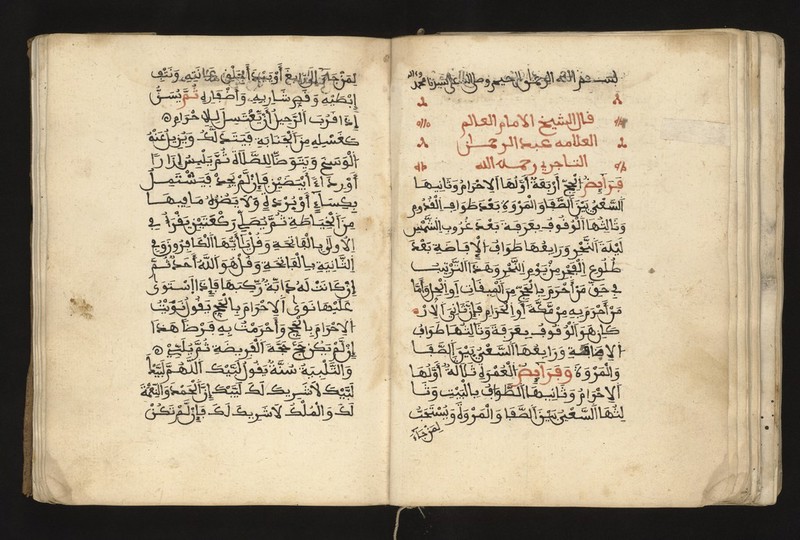 بسم الله الرحمن الرحيم وصلى الله على سيدنا محمد واله
قال الشيخ الامام العالم
العلامه عبد الرحمن
التاجرى رحمه الله
فرايض الحج أربعة أولها الاحرام وثانيها
السعي بين الصفا والمروة بعد طواف القدوم
وثالثها الوقوف بعرفة بعد غروب الشمس
ليلة النحر ورابعها طواف الإفاضة بعد
طلوع الفجر من يوم النحر وهذا الترتيب
في حق من أحرم بالحج من الميقات أو الحل وأما
من أحرم به من مكة أو الحرم فإن ثانى الار
كان هو الوقوف بعرفة وثالثها طواف
الافاضة ورابعها السعي بين الصفا
والمروة وفرايض العمرة ثلاثة أولها
الاحرام وثانيها الطواف بالبيت وثا
لثها السعي بين الصفا والمروة ويستحب
لمن جاء
لمن جاء الى رابغ أو بعده أن يحلق عانته وينتف
إبطيه وقص شاربه وأظفاره ثم يسن
إذا قرب الرحيل أن يغتسل للاحرام
كغسله من الجنابة فيتدلك ويزيل عنه
الوسخ ويتوضأ للصلاة ثم يلبس إزارا
أو رداء أبيضين فإن لم يجد فيشتمل
بكساء أو بردة ولا يضره ما فيها
من الخياطة ثم يصلي ركعتين يقرأ في
الأولى بالفاتحة وقل يا أيها الكافرون وفي
الثانية بالفاتحة وقل هو الله أحد ثم
إن كانت له دابة ركبها فإذا استوى
عليها نوى الاحرام بالحج يقول نويت
الاحرام بالحج وأحرمت به فرضا هذا
إن لم تكن حج حجة الفريضة ثم يلبي
والتلبية سنة يقول لبيك اللهم لبيك
لبيك لا شريك لك لبيك إن الحمد والنعمة
لك والملك لا شريك لك فإن لم تكن